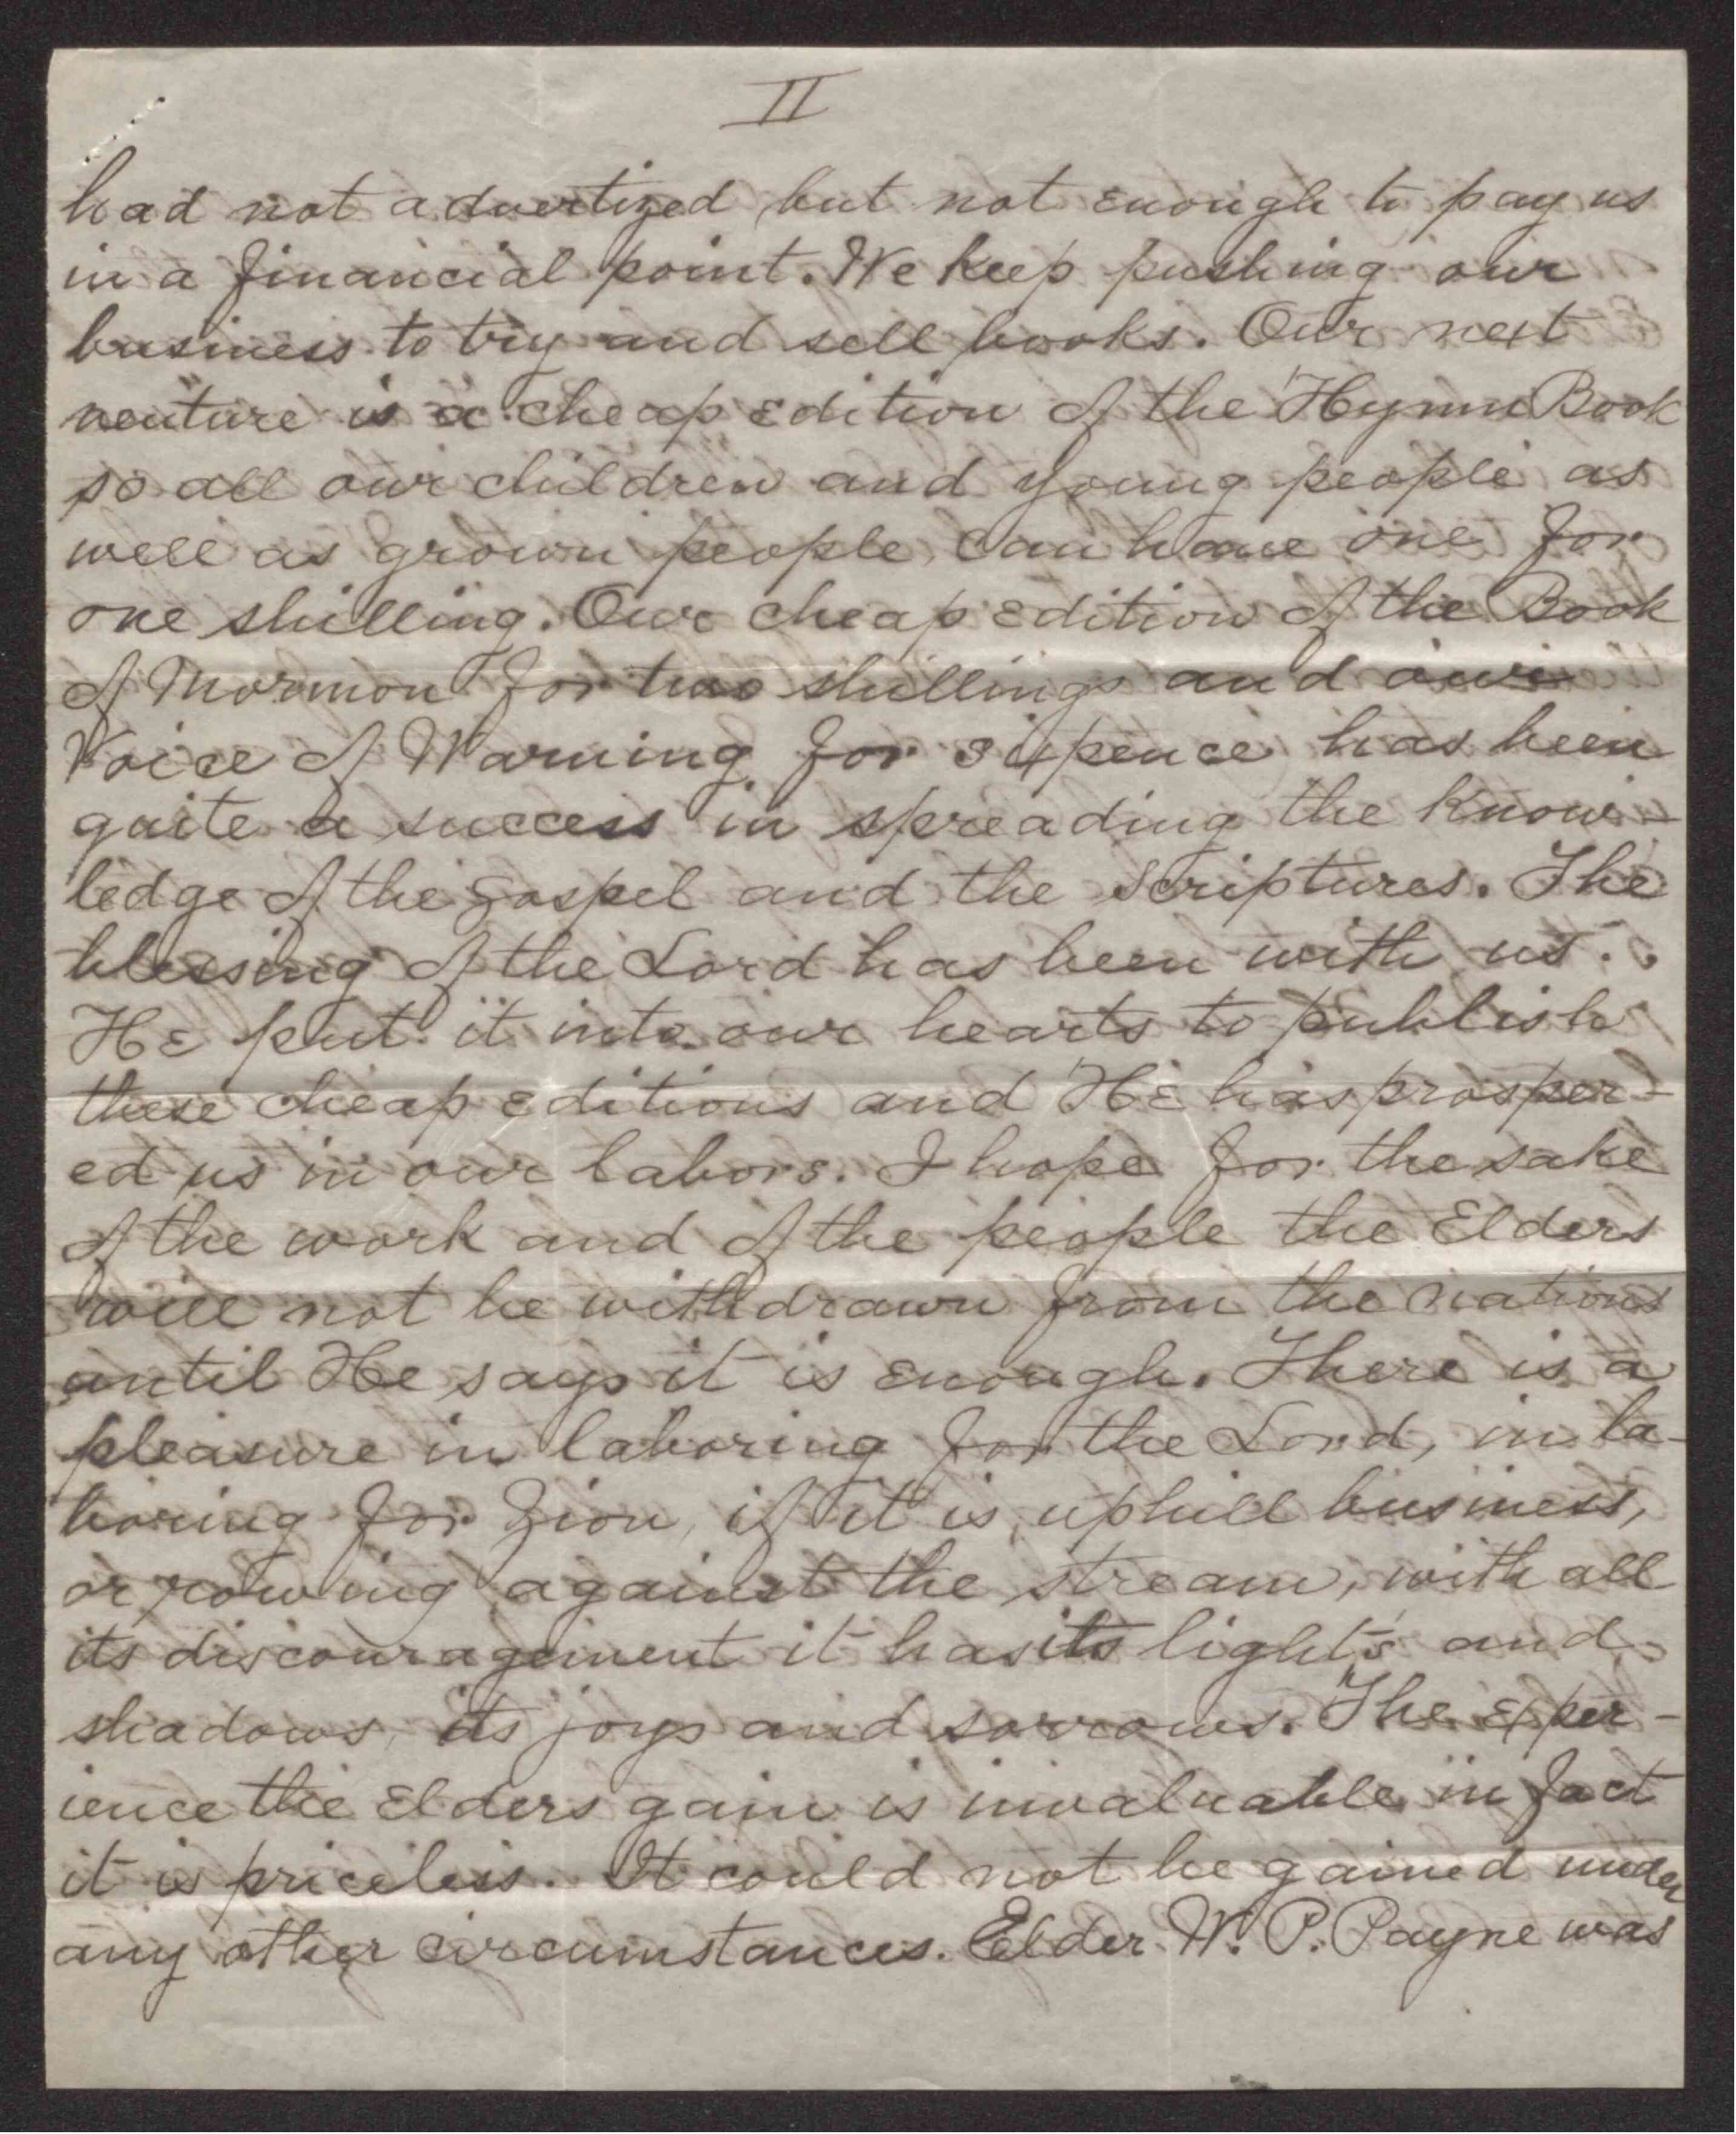 II
had not advertized but not enough to pay us
in a financial point. We keep pushing our
business to try and sell books. Our next
venture is a cheap edition of the Hymn Book
so all our children and young people as
well as grown people can have one for
one shilling. Our cheap edition of the Book
of Mormon for two shillings and our
Voice of Warning for sixpence has been
quite a success in spreading the know-
ledge of the gospel and the scriptures. The
blessing of the Lord has been with us.
He put it into our hearts to publish
these cheap editions and He has prosper-
ed us in our labors. I hope for the sake
of the work and of the people the Elders
will not be withdrawn from the nations
until He says it is enough. There is a
pleasure in laboring for the Lord, in la-
boring for Zion, if it is uphill business,
or rowing against the stream, with all
its discouragement it has its lights and
shadows, its joys and sorrows. The exper-
ience the Elders gain is invaluable in fact
it is priceless. It could not be gained under
any other circumstances. Elder W. P. Payne was